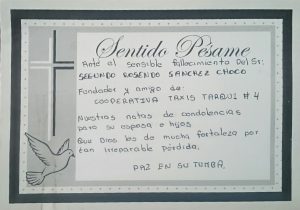 Sentido Pésame
Ante al sensible fallecimiento Del Sr:
SEGUNDO ROSENDO SANCHEZ CHOCO
Fundador y amigo de:
COOPERATIVA TAXIS TARQUI # 4
Nuestras notas de condolencias
para su esposa e hijos
Que Dios les de mucha fortaleza por
tan irreparable pérdida.
PAZ EN SU TUMBA.